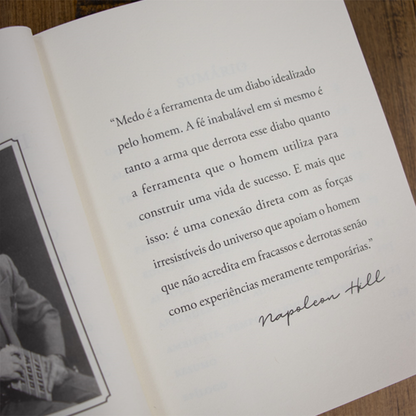 “Medo é a ferramenta de um diabo idealizado
pelo homem. A fé inabalável em si mesmo é
tanto a arma que derrota esse diabo quanto
a ferramenta que o homem utiliza para
construir uma vida de sucesso. E mais que
isso: é uma conexão direta com as forças
irresistíveis do universo que apoiam o homem
que não acredita em fracassos e derrotas senão
como experiências meramente temporárias.”
Napoleon Hill